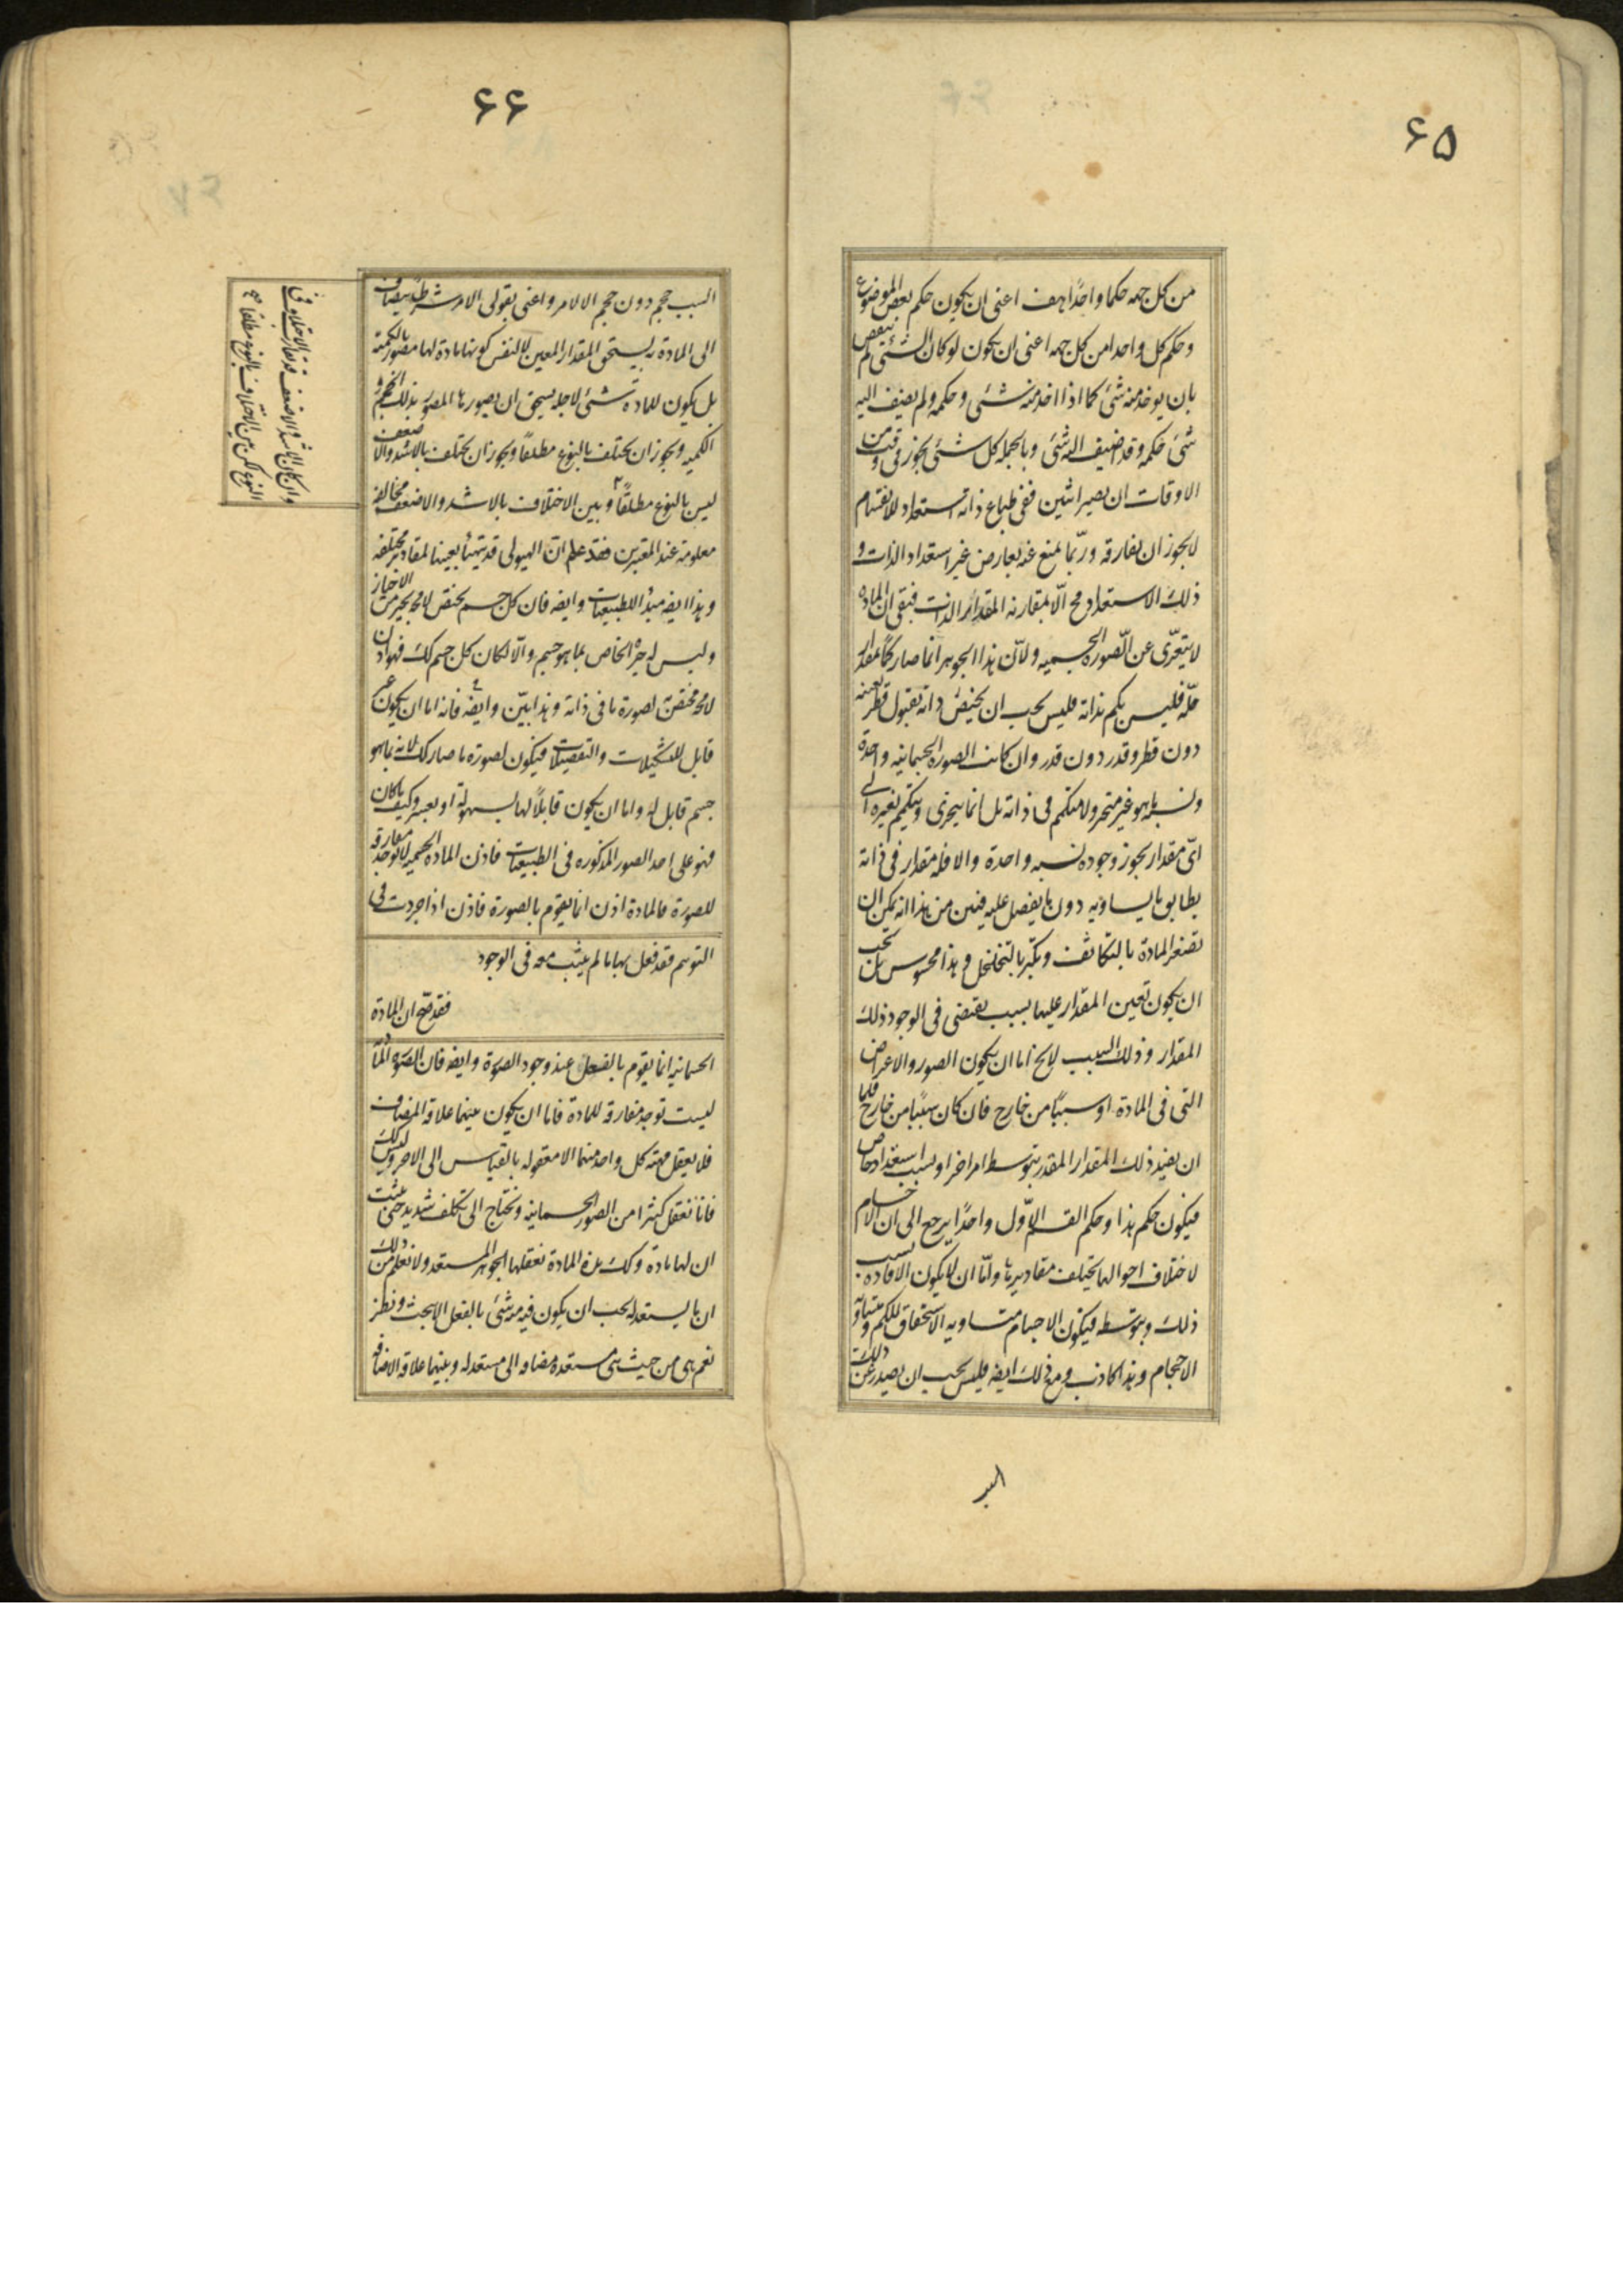 ۶۵
من كل جهه حكما واحدًا هف اعنى ان يكون حكم بعض الموضوع
وحكم كل واحدا من كل جهه اعنى ان يكون لو كان الشئ لم ينقص
بان يوخذ منه شئ كما اذا اخذ منه شئ وحكمه ولم يضف اليه
شئ حكمه وقد اضيف اليه شئ وبالجمله كل شئ يجوز فى وقت من
الاوقات ان يصير اثنين ففى طباع ذاته استعداد للانقسام
لايجوز ان يفارقه وربّما يمنع عنه بعارض غير استعداد الذات و
ذلك الاستعداد مح الّا بمقارنه المقدار الذات فبقى ان الماده
لايتعرّى عن الصّوره الجسميه ولانّ هذا الجوهر انما صار كمًا بمقدار
حلّه فليس بكم بذاته فليس يجب ان يختص ذاته بقبول قطر بعينه
دون قطر وقدر دون قدر وان كانت الصوره الجسمانيه واحدة
ونسبه ما هو غير متحز ولا متكمم فى ذاته بل انما يتجزى ويتكمم بغيره الى
اىّ مقدار يجوز وجوده نسبه واحدة والا فله مقدار فى ذاته
يطابق ما يساويه دون ما يفضل عليه فبين من هذا انه يمكن ان
تصغر المادة بالتكاثف وتكبّر بالتخلخل وهذا محسوس بل يجب
ان يكون تعين المقدار عليها بسبب يقتضى فى الوجود ذلك
المقدار وذلك السبب لايخ اما ان يكون الصور والاعراض
التى فى المادة او سببًا من خارج فان كان سببًا من خارج فاما
ان يفيد ذلك المقدار المقدر بتوسط امر اخر او بسبب استعداد خاص
فيكون حكم هذا وحكم القسم الاوّل واحدًا يرجع الى ان الاجسام
لاختلاف احوالها يختلف مقاديرها وامّا ان لايكون الافاده بسبب
ذلك وبتوسطه فيكون الاجسام متساويه الاستحقاق للكم ومتساويه
الاحجام وهذا كاذب ومع ذلك ايضه فليس يجب ان يصدر عن ذلك
السبب
۶۶
السبب حجم دون حجم الا لامر واعنى بقولى الامر شرطًا يضاف
الى المادة به يستحق المقدار المعين لا لنفس كونها مادة لها مصور بالكمية
بل يكون للمادة شئ لاجله يستحق ان يصورها المصور بذلك الحجم و
الكميه ويجوز ان يختلف بالنوع مطلقًا ويجوز ان يختلف بالاشد والاضعف
ليس بالنوع مطلقًا وبين الاختلاف بالاشد والاضعف مخالفه
معلومة عند المعتبرين فقد علم انّ الهيولى قد يتهيأ بعينها لمقادير مختلفه
وهذا ايضه مبدأ للطبيعيات وايضه فان كل جسم يختص لامحه بحيز من الاحياز
وليس له حيزه الخاص بما هو جسم والّا لكان كل جسم كك فهو اذن
لامحه مختص لصورة ما فى ذاته وهذا بيّن وايضه فانه اما ان يكون غير
قابل للتشكيلات والتفصيلات فيكون لصورة ما صار كك لانه بما هو
جسم قابل له واما ان يكون قابلًا لها بسهولة او بعسر وكيف ما كان
فهو على احد الصور المذكوره فى الطبيعيات فاذن الماده الجسميه لاتوجد مفارقه
للصورة فالمادة اذن انما يتقوم بالصورة فاذن اذا جردت فى
التوهم فقد فعل بها ما لم يثبت معه فى الوجود
فقد صحّ ان المادة
الجسمانيه انما يقوم بالفعل عند وجود الصورة وايضه فان الصورة المادية
ليست توجد مفارقه للمادة فاما ان يكون بينهما علاقه المضاف
فلايعقل مهيته كل واحد منهما الا معقوله بالقياس الى الاخر وليس كك
فانا نعقل كثيرا من الصور الجسمانيه ونحتاج الى تكلف شديد حتى يثبت
ان لها مادة وكك هذه المادة نعقلها الجوهر المستعد ولا نعلم من ذلك
ان ما يستعد له يجب ان يكون فيه منه شئ بالفعل الا ببحث ونظر
نعم هى من حيث هى مستعدة مضافه الى مستعد له وبينهما علاقه الاضافه
وان كان الاشد والاضعف قد يقارب الاختلاف فى
النوع لكن بين الاختلاف بالنوع مطلقا صح